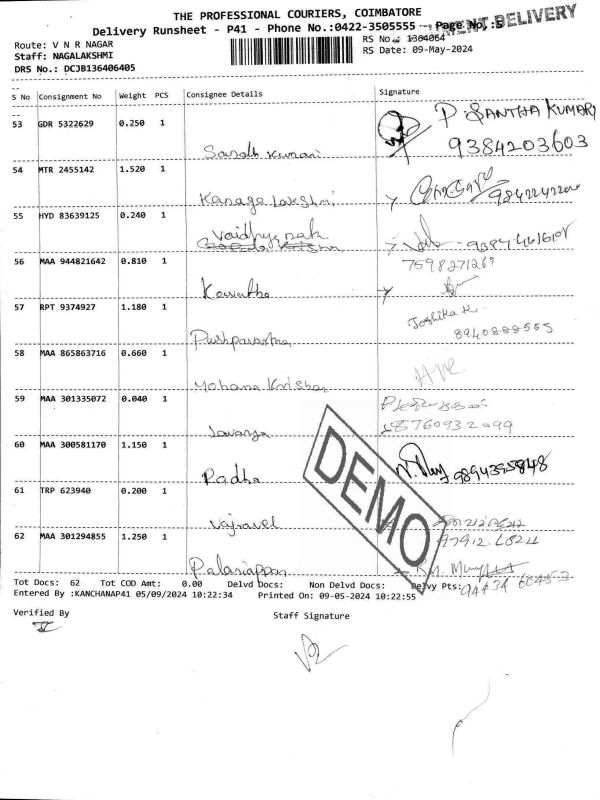 THE PROFESSIONAL COURIERS, COIMBATORE
Delivery Runsheet - P41 - Phone No.:0422-3505555 - Page No. :5
DELIVERY
Route: V N R NAGAR
RS No.: 1364064
Staff: NAGALAKSHMI
RS Date: 09-May-2024
DRS No.: DCJB136406405
S No Consignment No Weight PCS Consignee Details Signature
53 GDR 5322629 0.250 1
P. SANTHA KUMARI
9384203603
54 MTR 2455142 1.520 1
Kanaga lakshmi
55 HYD 83639125 0.240 1
Vaidhyanak
56 MAA 944821642 0.810 1
7598271269
Kavitha
57 RPT 9374927 1.180 1
Joshika K
Pushparathna
58 MAA 865863716 0.660 1
Mohana Krishan
59 MAA 301335072 0.040 1
Lavanya
60 MAA 300581170 1.150 1
Radha
61 TRP 623940 0.200 1
Vajravel
62 MAA 301294855 1.250 1
Palaniappan
DEMO
Tot Docs: 62 Tot COD Amt: 0.00 Delvd Docs: Non Delvd Docs: Delvy Pts:
Entered By :KANCHANAP41 05/09/2024 10:22:34 Printed On: 09-05-2024 10:22:55
Verified By
Staff Signature